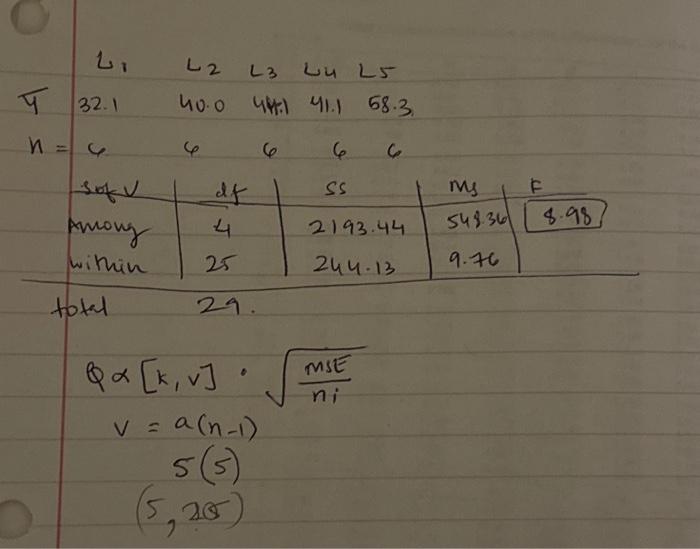 L1 L2 L3 L4 L5
ȳ 32.1 40.0 44.1 41.1 58.3
n = 6 6 6 6 6
S of V df SS MS F
Among 4 2193.44 548.36 8.98
within 25 244.13 9.76
total 29.
Q α [k, v] · √(MSE / ni)
v = a(n-1)
5(5)
(5, 25)